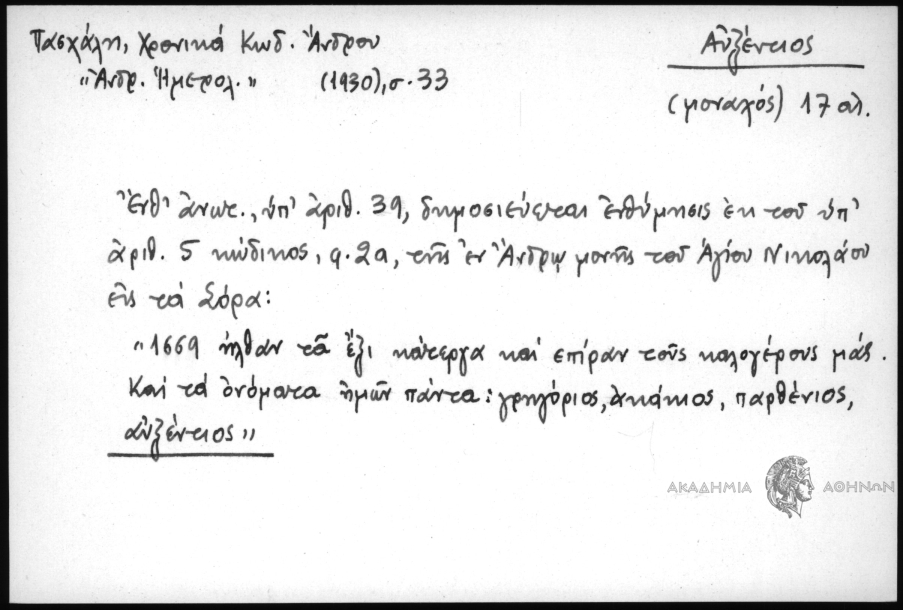 Πασχάλη, Χρονικά Κωδ. Ἄνδρου
"Ἀνδρ. Ἡμερολ." (1930), σ. 33
Αὐξέντιος
(μοναχός) 17 αι.
Ἔνθ' ἀνωτ., ὑπ' ἀριθ. 39, δημοσιεύεται ἐνθύμησις ἐκ τοῦ ὑπ'
ἀριθ. 5 κώδικος, φ. 2α, τῆς ἐν Ἄνδρῳ μονῆς τοῦ Ἁγίου Νικολάου
εἰς τά Σόρα:
"1669 ἦλθαν τᾶ ἔξι κάτεργα καί επίραν τούς καλογέρους μάς.
Καί τά ὀνόματα ἡμῶν πάντα: γρηγόριος, ἀκάκιος, παρθένιος,
αὐξέντιος"
ΑΚΑΔΗΜΙΑ ΑΘΗΝΩΝ